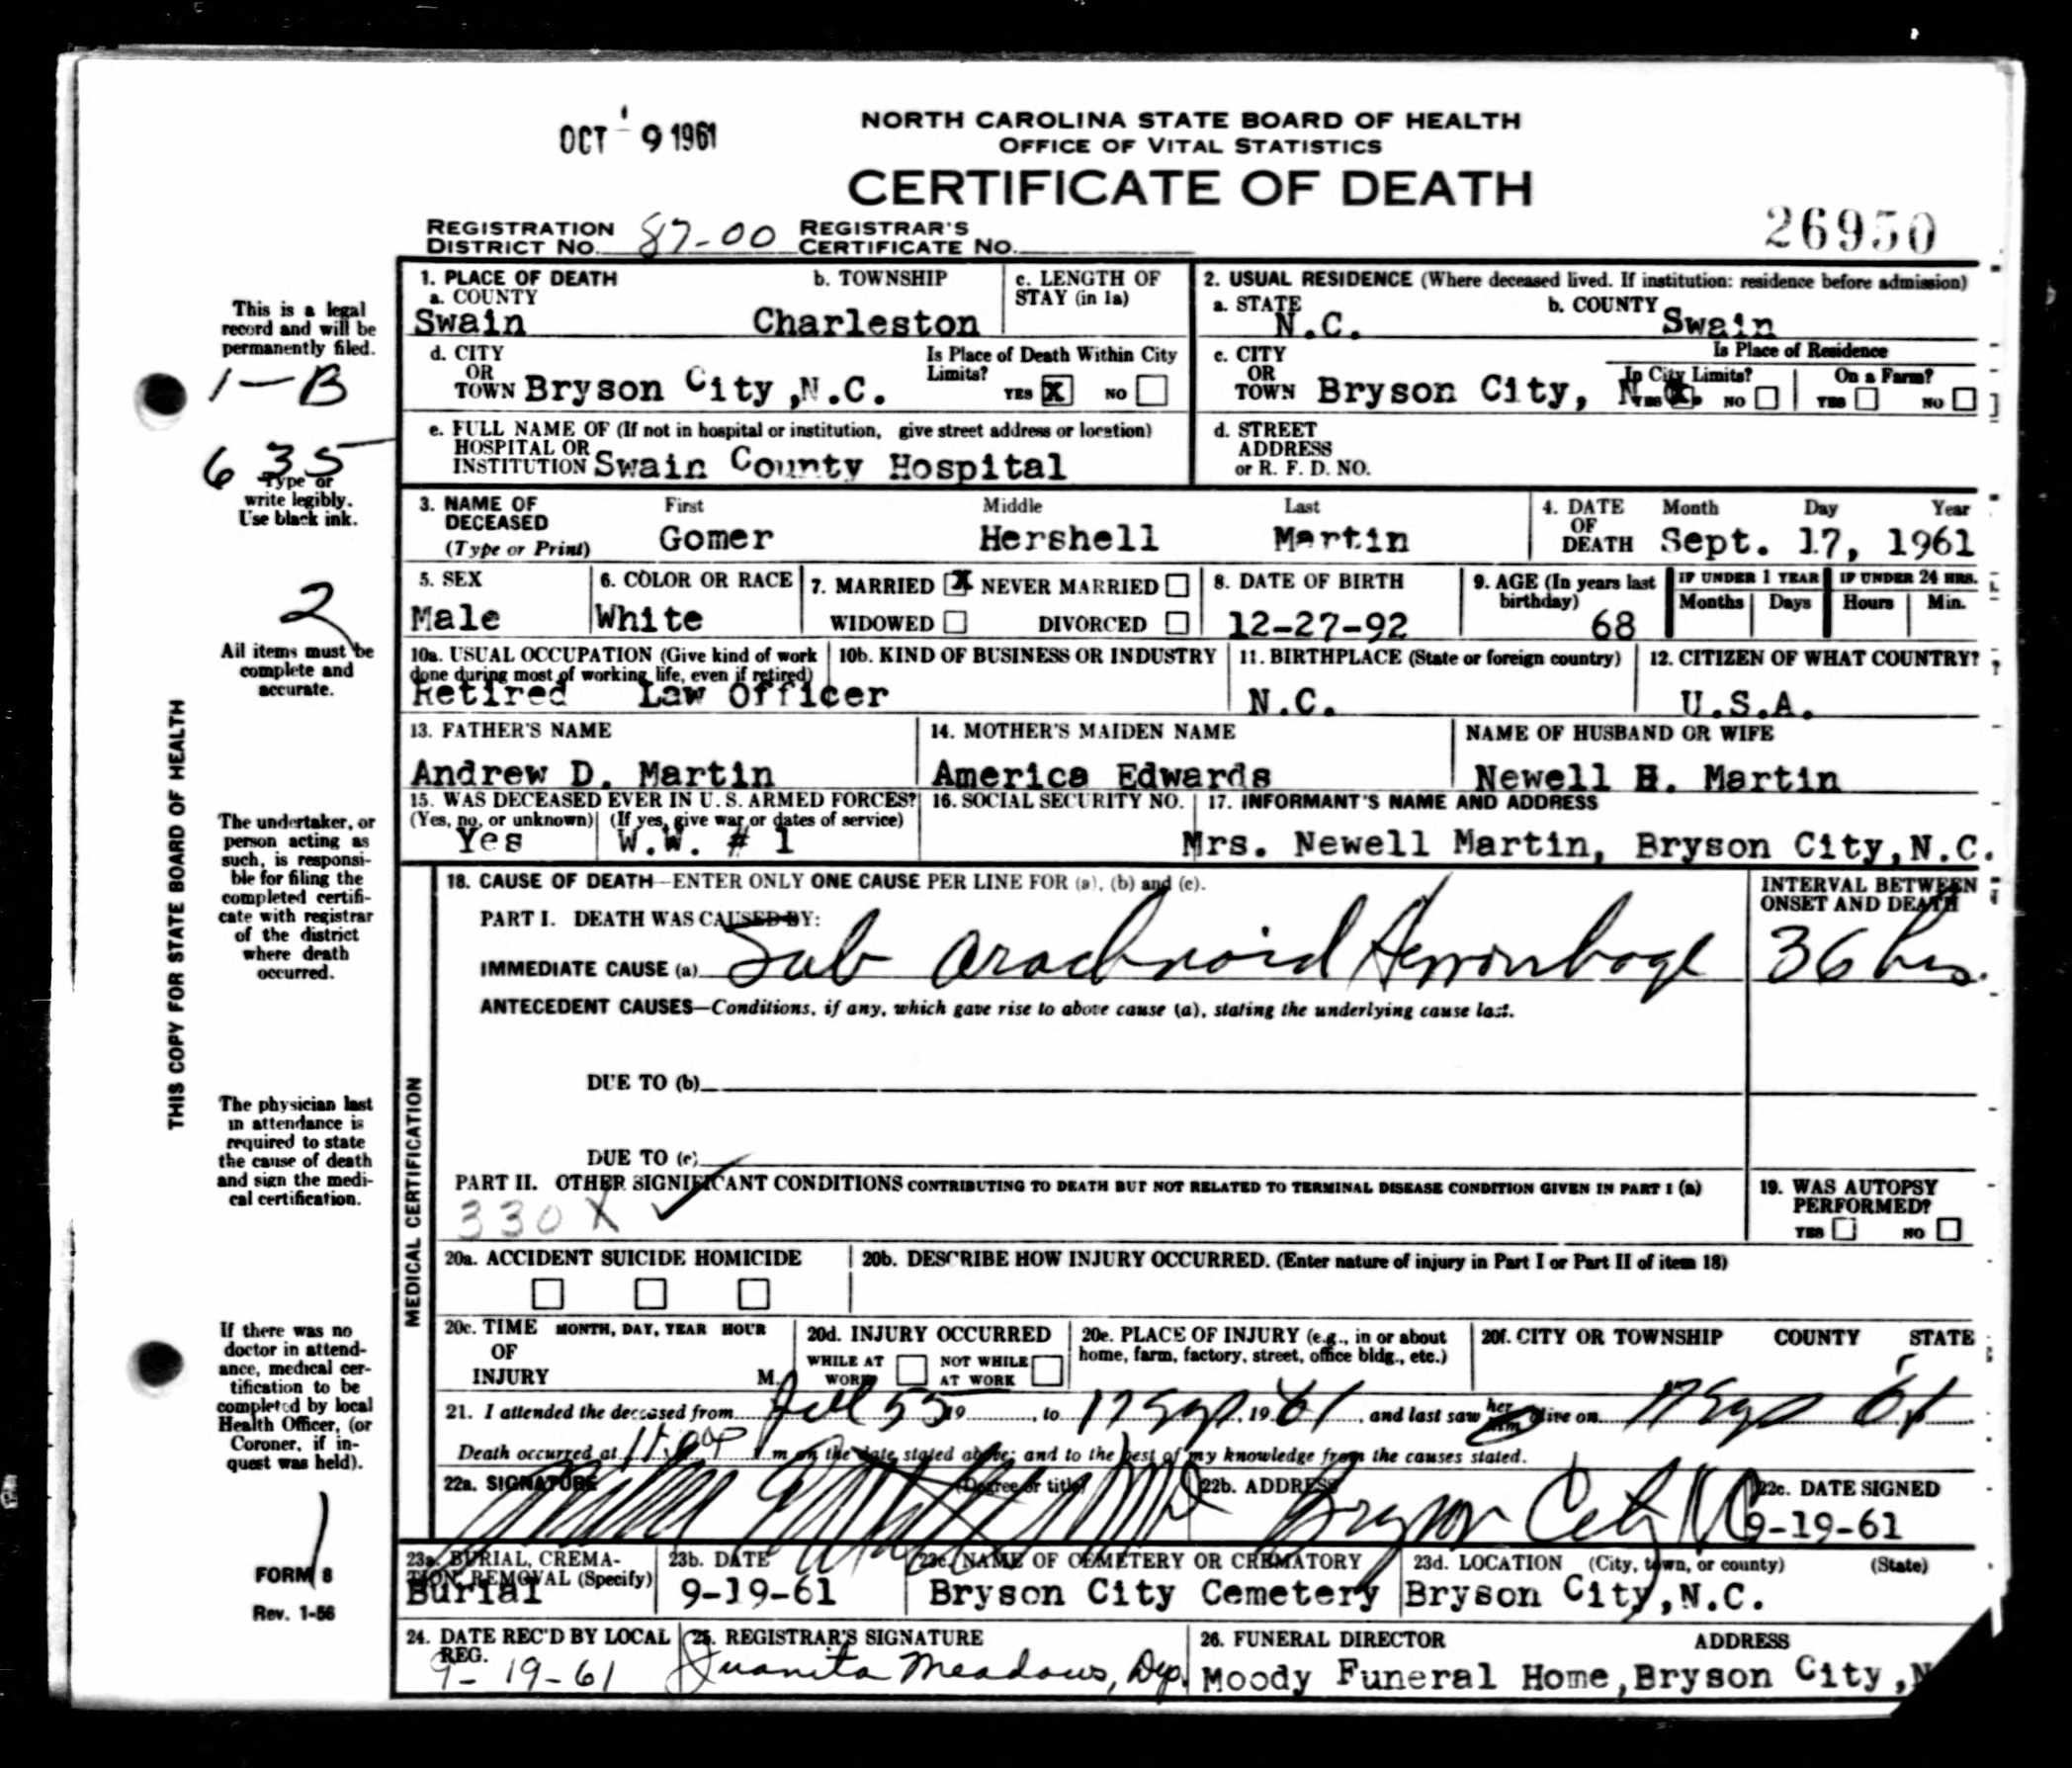 OCT 9 1961
NORTH CAROLINA STATE BOARD OF HEALTH
OFFICE OF VITAL STATISTICS
CERTIFICATE OF DEATH
26950
REGISTRATION DISTRICT No. 87-00 REGISTRAR'S CERTIFICATE No.
THIS COPY FOR STATE BOARD OF HEALTH
This is a legal
record and will be
permanently filed.
1-B
635
Type or
write legibly.
Use black ink.
2
All items must be
complete and
accurate.
The undertaker, or
person acting as
such, is responsi-
ble for filing the
completed certifi-
cate with registrar
of the district
where death
occurred.
The physician last
in attendance is
required to state
the cause of death
and sign the medi-
cal certification.
If there was no
doctor in attend-
ance, medical cer-
tification to be
completed by local
Health Officer, (or
Coroner, if in-
quest was held).
1
FORM 8
Rev. 1-56
1. PLACE OF DEATH
a. COUNTY
Swain
b. TOWNSHIP
Charleston
c. LENGTH OF
STAY (in 1a)
2. USUAL RESIDENCE (Where deceased lived. If institution: residence before admission)
a. STATE
N.C.
b. COUNTY
Swain
d. CITY
OR
TOWN Bryson City,N.C.
Is Place of Death Within City
Limits?
YES X NO
c. CITY
OR
TOWN Bryson City, N.C.
Is Place of Residence
In City Limits? On a Farm?
YES X NO YES NO
e. FULL NAME OF (If not in hospital or institution, give street address or location)
HOSPITAL OR
INSTITUTION Swain County Hospital
d. STREET
ADDRESS
or R. F. D. NO.
3. NAME OF
DECEASED
(Type or Print)
First Middle Last
Gomer Hershell Martin
4. DATE
OF
DEATH
Month Day Year
Sept. 17, 1961
5. SEX
Male
6. COLOR OR RACE
White
7. MARRIED X NEVER MARRIED
WIDOWED DIVORCED
8. DATE OF BIRTH
12-27-92
9. AGE (In years last
birthday)
68
IF UNDER 1 YEAR
Months Days
IF UNDER 24 HRS.
Hours Min.
10a. USUAL OCCUPATION (Give kind of work
done during most of working life, even if retired)
Retired Law Officer
10b. KIND OF BUSINESS OR INDUSTRY
11. BIRTHPLACE (State or foreign country)
N.C.
12. CITIZEN OF WHAT COUNTRY?
U.S.A.
13. FATHER'S NAME
Andrew D. Martin
14. MOTHER'S MAIDEN NAME
America Edwards
NAME OF HUSBAND OR WIFE
Newell H. Martin
15. WAS DECEASED EVER IN U. S. ARMED FORCES?
(Yes, no, or unknown) (If yes, give war or dates of service)
Yes W.W. # 1
16. SOCIAL SECURITY NO.
17. INFORMANT'S NAME AND ADDRESS
Mrs. Newell Martin, Bryson City,N.C.
MEDICAL CERTIFICATION
18. CAUSE OF DEATH—ENTER ONLY ONE CAUSE PER LINE FOR (a), (b) and (c).
INTERVAL BETWEEN
ONSET AND DEATH
PART I. DEATH WAS CAUSED BY:
IMMEDIATE CAUSE (a) Sub arachnoid Hemorrhage 36 hrs.
ANTECEDENT CAUSES—Conditions, if any, which gave rise to above cause (a), stating the underlying cause last.
DUE TO (b)
DUE TO (c)
PART II. OTHER SIGNIFICANT CONDITIONS CONTRIBUTING TO DEATH BUT NOT RELATED TO TERMINAL DISEASE CONDITION GIVEN IN PART I (a)
330X ✓
19. WAS AUTOPSY
PERFORMED?
YES NO
20a. ACCIDENT SUICIDE HOMICIDE
20b. DESCRIBE HOW INJURY OCCURRED. (Enter nature of injury in Part I or Part II of item 18)
20c. TIME MONTH, DAY, YEAR HOUR
OF
INJURY M.
20d. INJURY OCCURRED
WHILE AT WORK NOT WHILE AT WORK
20e. PLACE OF INJURY (e.g., in or about
home, farm, factory, street, office bldg., etc.)
20f. CITY OR TOWNSHIP COUNTY STATE
21. I attended the deceased from 55 19 , to 17 Sep , 19 61 , and last saw her him alive on 17 Sep 61
Death occurred at m on the date stated above; and to the best of my knowledge from the causes stated.
22a. SIGNATURE (Degree or title)
22b. ADDRESS
Bryson City NC
22c. DATE SIGNED
9-19-61
23a. BURIAL, CREMA-
TION, REMOVAL (Specify)
Burial
23b. DATE
9-19-61
23c. NAME OF CEMETERY OR CREMATORY
Bryson City Cemetery
23d. LOCATION (City, town, or county) (State)
Bryson City,N.C.
24. DATE REC'D BY LOCAL
REG.
9-19-61
25. REGISTRAR'S SIGNATURE
Juanita Meadows, Dep.
26. FUNERAL DIRECTOR ADDRESS
Moody Funeral Home,Bryson City,N